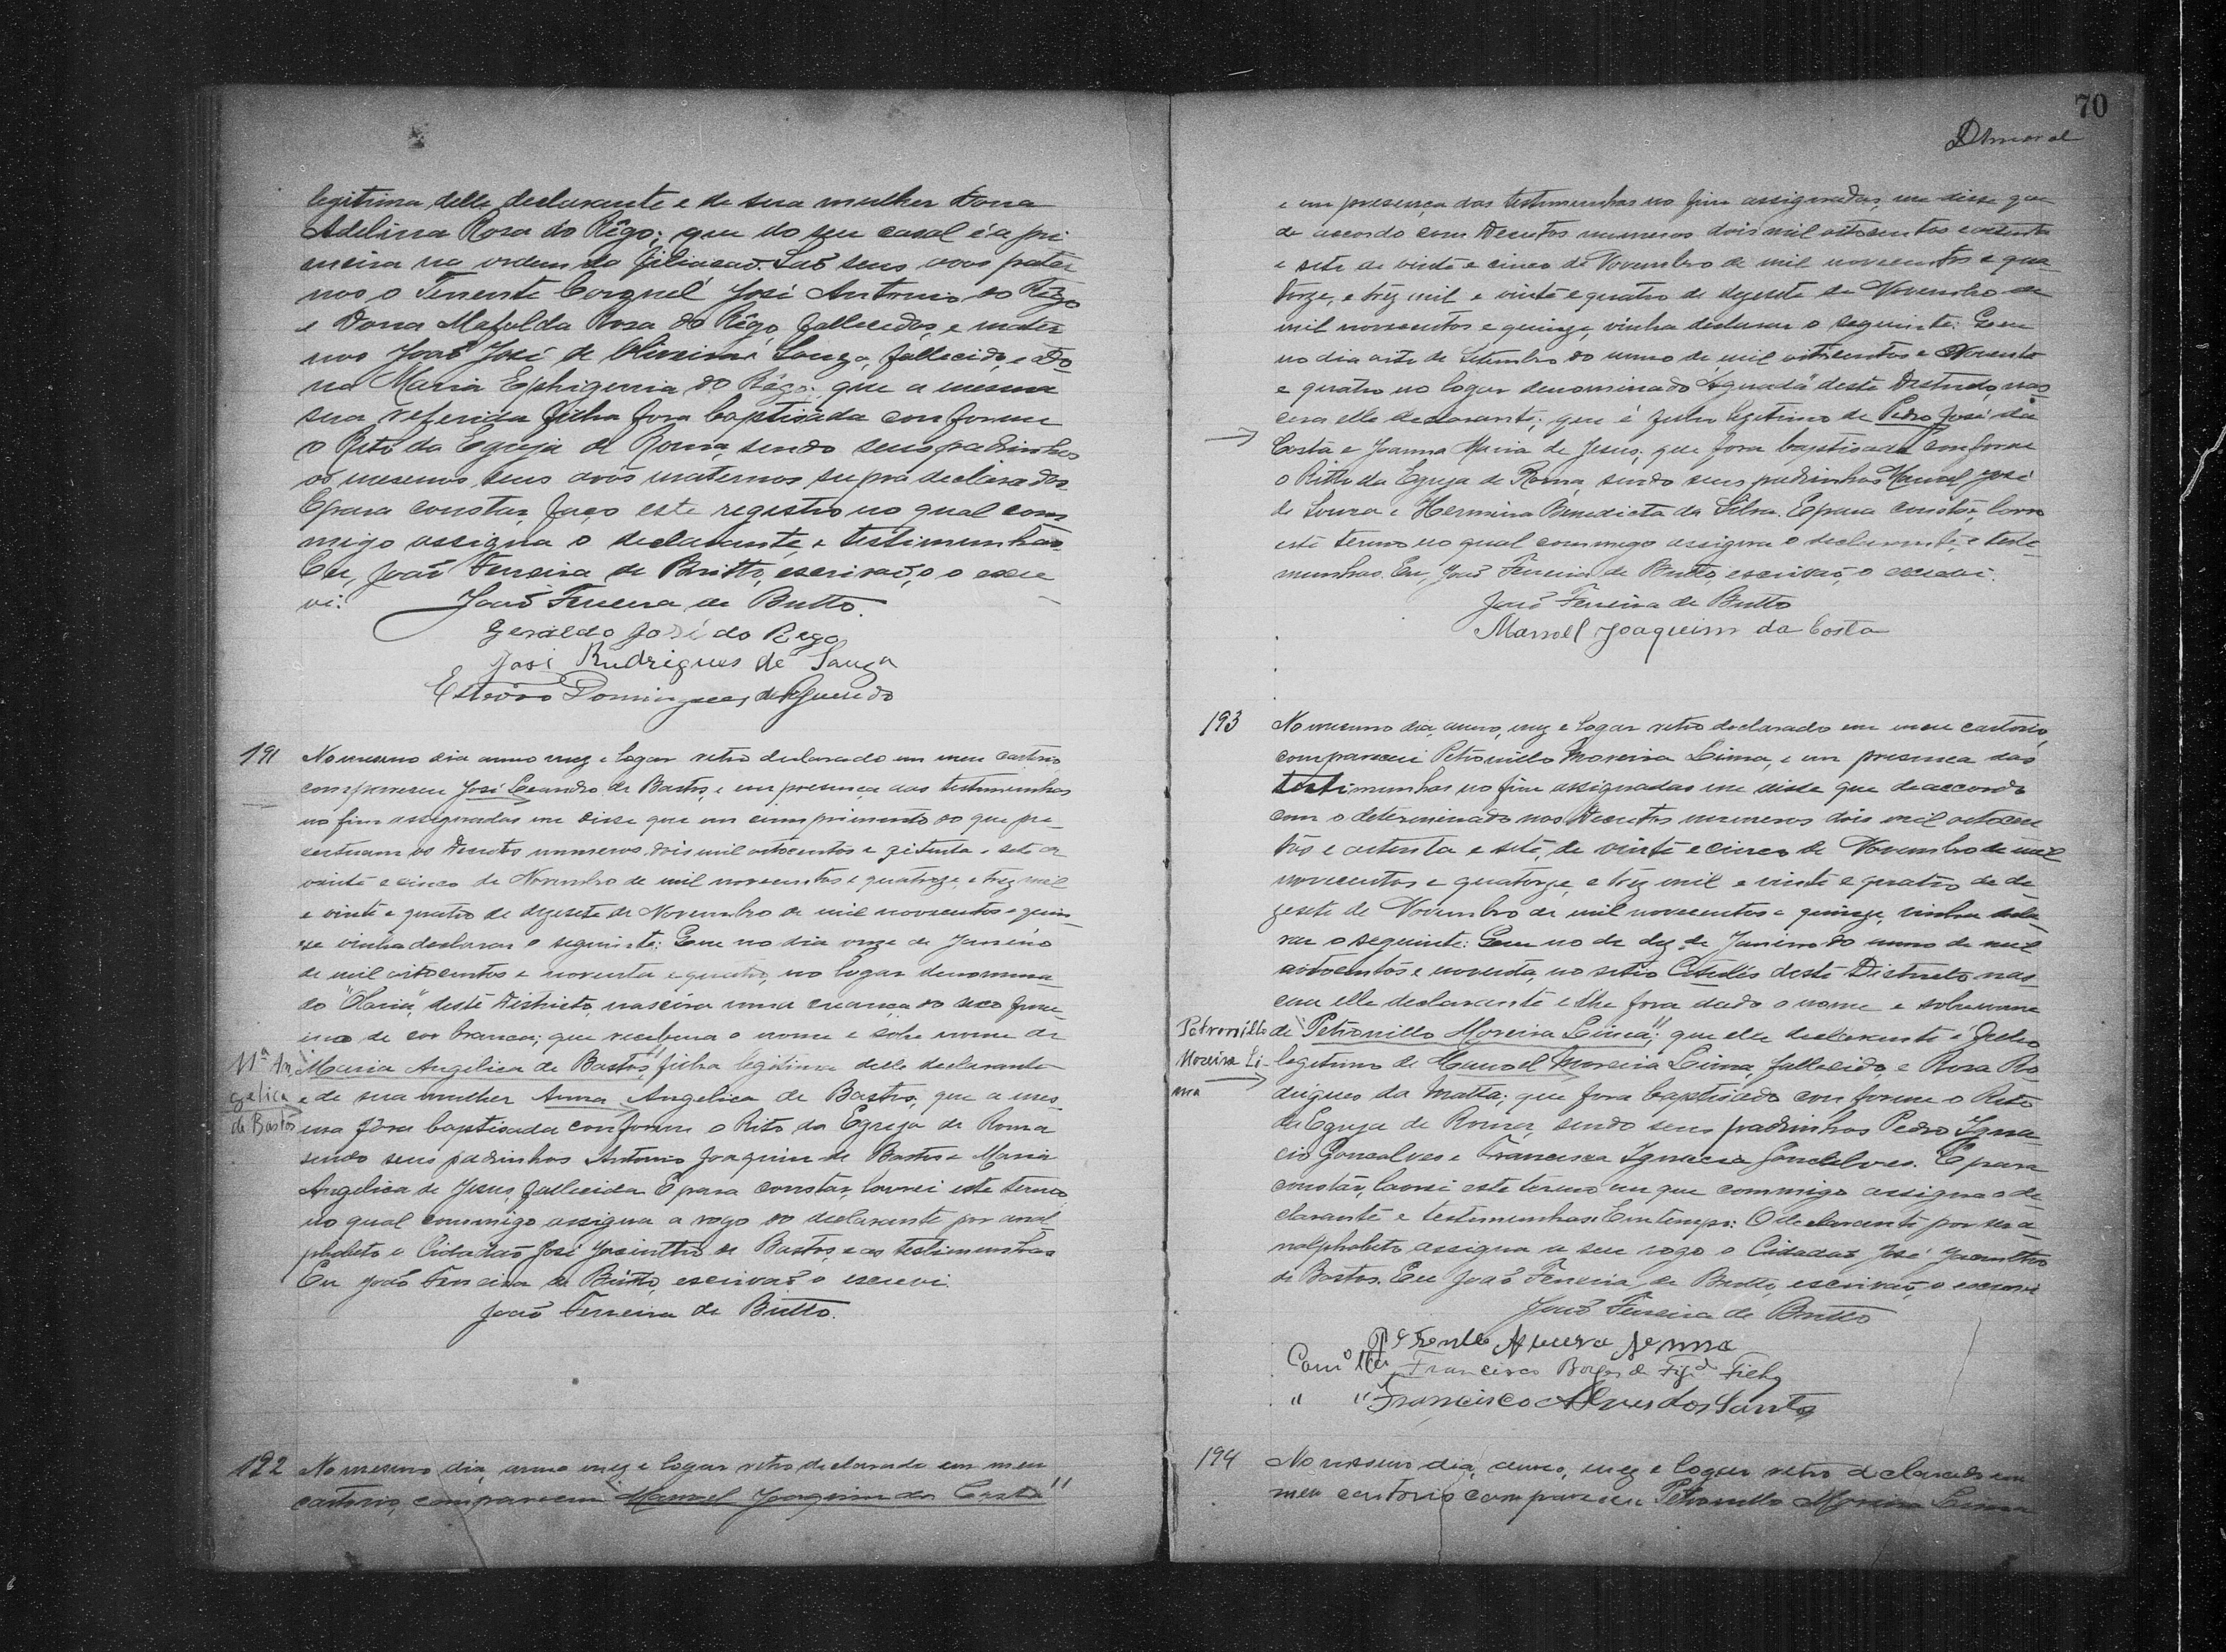 legitima delle declarante e de sua mulher Dona
Adelina Rosa do Rêgo; que do seu casal é a pri
meira na ordem da filiacao. São seus avos pater
nos o Tenente Coronel José Antonio do Rêgo
e Dona Mafalda Rosa do Rêgo, fallecidos, e mater
nos João José de Oliveira Souza, fallecido, e Do
na Maria Ephigenia do Rêgo: que a mesma
sua referida filha fora baptisada conforme
o Rito da Egreja de Roma, sendo seus padrinhos
os mesmos seus avós maternos supra declarados.
E para constar, faço este registro no qual com
migo assigna o declarante e testimunhas.
Eu, João Ferreira de Britto, escrivão, o escre
vi.
João Ferreira de Britto.
Geraldo José do Rego
José Rudrigues de Sauza
Estevão Domingues de Figueiredo
191 No mesmo dia anno mez e logar retro declarado em meu cartorio
compareceu José Leandro de Bastos, e em presença das testimunhas
no fim assignadas me disse que em cumprimento do que pre
ceituam os Decretos numeros dois mil oitocentos e oitenta e sete de
vinte e cinco de Novembro de mil novecentos e quatorze, e trez mil
e vinte e quatro de dezesete de Novembro de mil novecentos e quin
ze vinha declarar o seguinte: Que no dia onze de Janeiro
de mil oitocentos e noventa e quatro, no logar denomina
do "Olaria", deste Districto, nascera uma creança do sexo femi
nino de cor branca; que recebera o nome e sobre nome de
Mª An
gelica
de Bastos
"Maria Angelica de Bastos", filha legitima delle declarante
e de sua mulher Anna Angelica de Bastos, que a mes
ma fôra baptisada conforme o Rito da Egreja de Roma
sendo seus padrinhos Antonio Joaquim de Bastos e Maria
Angelica de Jesus, fallecida. E para constar, lavrei este termo
no qual commigo assigna a rogo do declarante por anal
phabeto o Cidadão José Jacintho de Bastos, e as testimunhas
Eu João Ferreira de Britto, escrivão o escrevi.
João Ferreira de Britto.
192 No mesmo dia, anno mez e logar retro declarado em meu
cartorio, compareceu "Manoel Joaquim da Costa"
70
Amaral
e em presença das testimunhas no fim assignadas, me disse que
de accordo com Decretos numeros dois mil oitocentos e oitenta
e sete de vinte e cinco de Novembro de mil novecentos e qua
torze, e trez mil e vinte e quatro de dezesete de Novembro de
mil novecentos e quinze, vinha declarar o seguinte: Que
no dia oito de Setembro do anno de mil oitocentos e Noventa
e quatro no logar denominado "Aguada" deste Districto, nas
cera elle declarante; que é filho legitimo de Pedro José da
Costa e Joanna Maria de Jesus; que fora baptisado conforme
o Ritto da Egreja de Roma, sendo seus padrinhos Manoel José
de Souza e Hermina Benedicta da Silva. E para constar, lavro
este termo no qual commigo assigna o declarante, e teste
munhas. Eu, João Ferreira de Britto, escrivão, o escrevi.
João Ferreira de Britto
Manoel Joaquim da Costa
193 No mesmo dia, anno, mez e logar retro declarado em meu cartorio,
compareceu Petronillo Moreira Lima, e em presença das
testimunhas no fim assignadas me disse que de accordo
com o determinado nos Decretos numeros dois mil oitocen
tos e oitenta e sete, de vinte e cinco de Novembro de mil
novecentos e quatorze, e trez mil e vinte e quatro de de
zesete de Novembro de mil novecentos e quinze, vinha decla
rar o seguinte: Que no de dez de Janeiro do anno de mil
oitocentos e noventa, no sitio deste Districto, nas
ceu elle declarante e lhe fora dado o nome e sobrenome
Petronillo
Moreira Li-
ma
de "Petronillo Moreira Lima"; que elle declarante é filho
legitimo de Manoel Moreira Lima, fallecido, e Rosa Ro
drigues da Matta; que fora baptisado conforme o Rito
da Egreja de Roma, sendo seus padrinhos Pedro Igna
cio Gonsalves e Francisca Ignacia Gonsalves. E para
constar, lavrei este termo em que commigo assigna o de
clarante e testemunhas. Em tempo: O declarante por ser a
nalphabeto assigna a seu rogo o Cidadão José Jacintho
de Bastos. Eu João Ferreira de Britto, escrivão, o escrevi
João Ferreira de Britto
Francisco Borges de Figdº Filho
" " Francisco Alves dos Santos
194 No mesmo dia, anno, mez e logar retro declarado em
meu cartorio compareceu Petronillo Moreira Lima